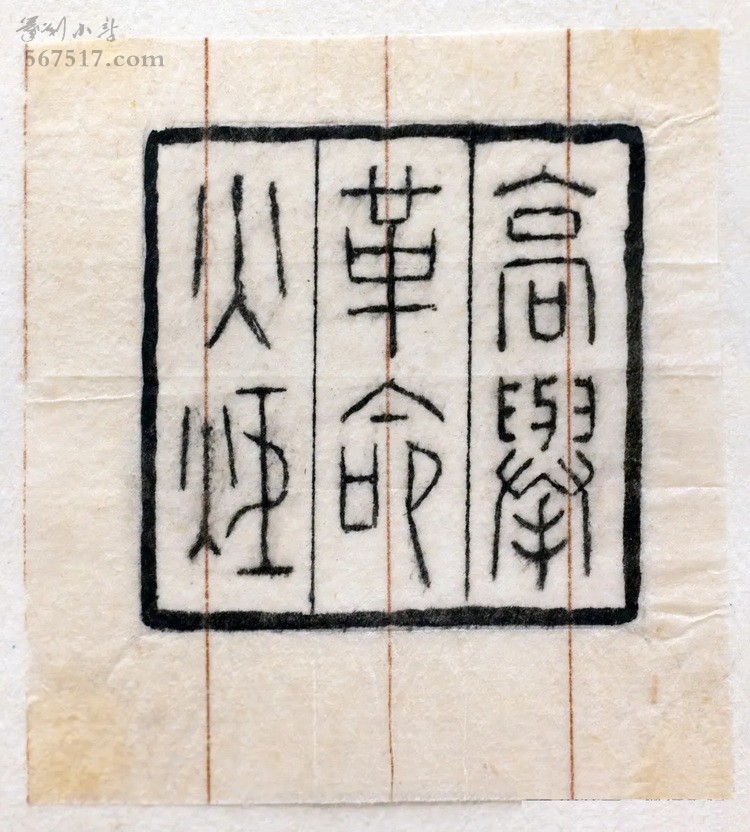 篆刻小
567517.com
高舉
革命
火炬